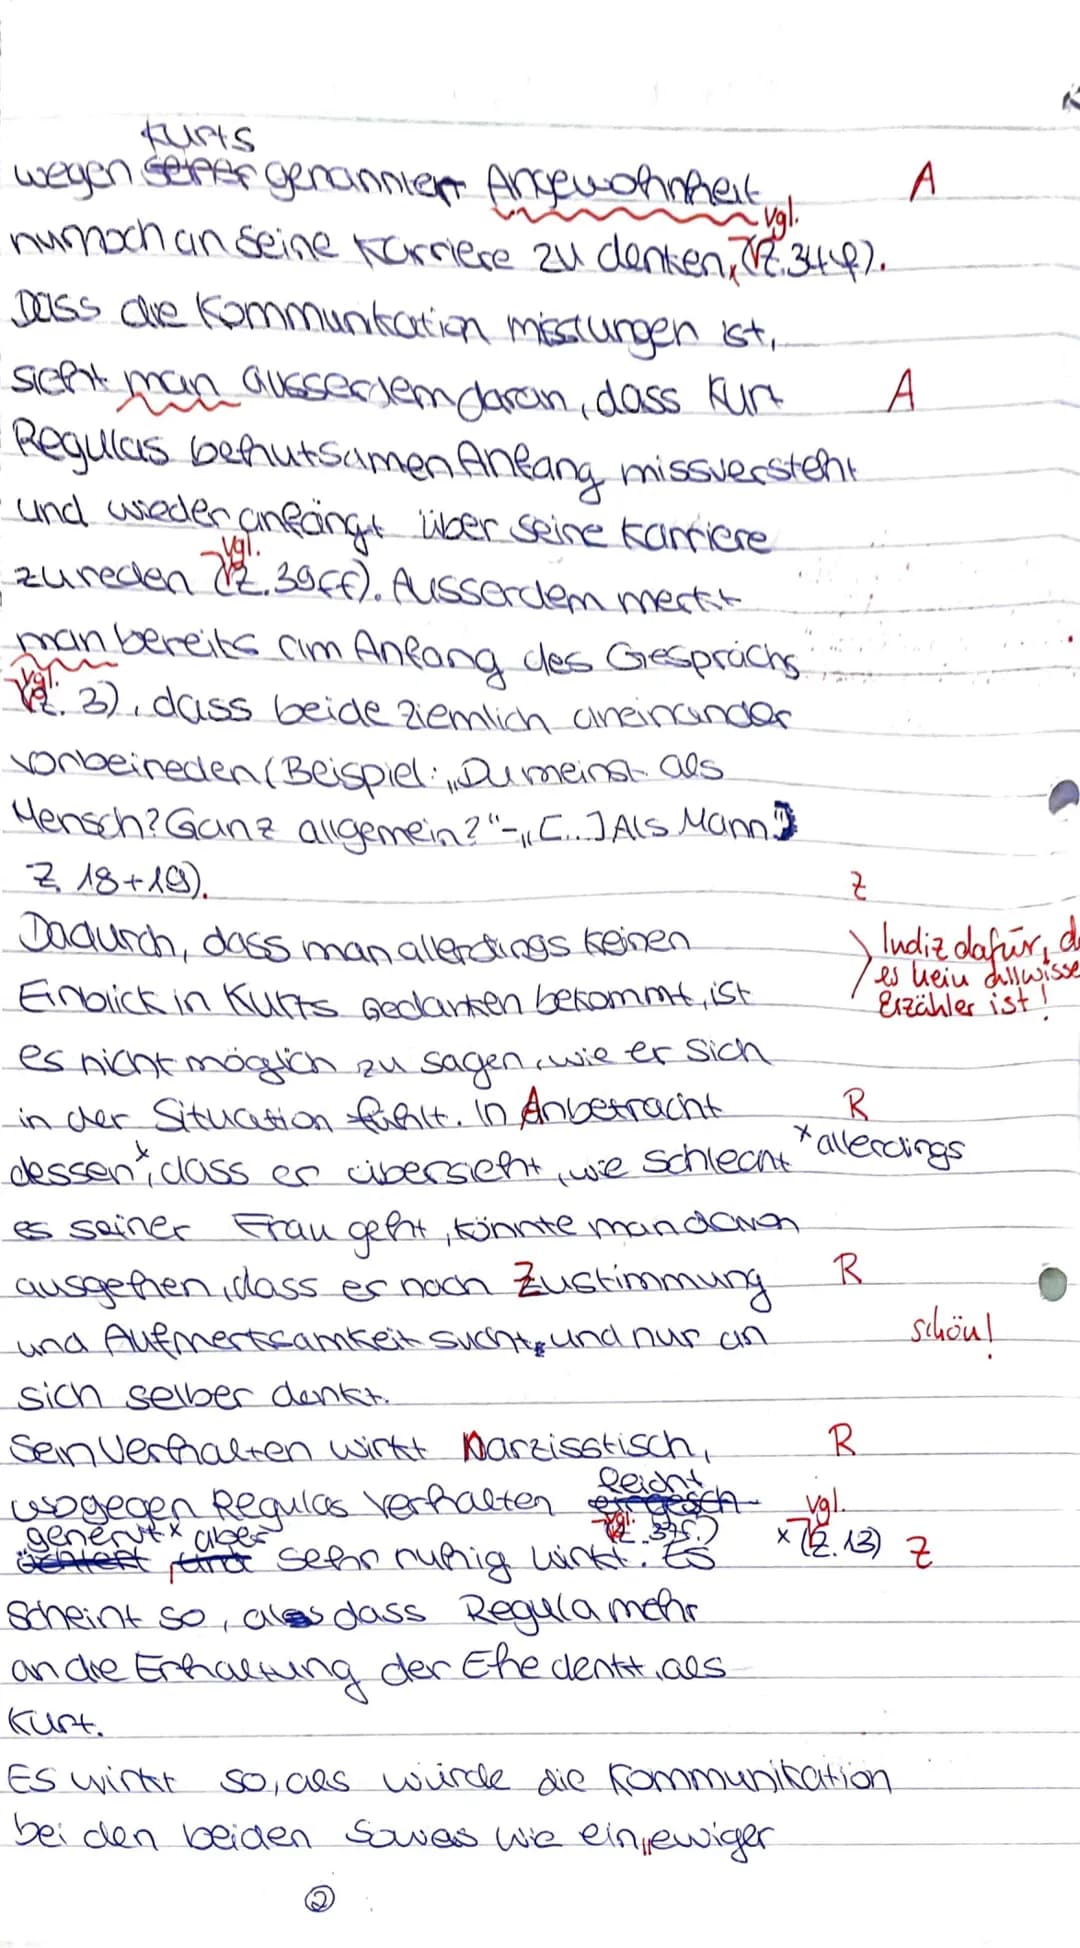 Kurts
wegen seiner genannten Angewohnheit A
vgl.
nurnoch an seine Karriere zu denken, (Z. 34f).
Dass die Kommunikation misslungen ist,
sieht man ausserdem daran, dass Kurt A
Regulas behutsamen Anfang missversteht
und wieder anfängt über seine Karriere
vgl.
zu reden (Z. 39ff). Ausserdem merkt
man bereits am Anfang des Gesprächs
vgl.
(Z. 3), dass beide ziemlich aneinander
vorbeireden (Beispiel: „Du meinst als
Mensch? Ganz allgemein?“-„[...] Als Mann"
Z. 18+19).
Z
Dadurch, dass man allerdings keinen Indiz dafür, d
Einblick in Kurts Gedanken bekommt, ist es kein allwisse
Erzähler ist!
es nicht möglich zu sagen, wie er sich
in der Situation fühlt. In Anbetracht R
dessen x, dass er übersieht, wie schlecht x allerdings
es seiner Frau geht, könnte man davon
ausgehen, dass er nach Zustimmung R
und Aufmerksamkeit sucht, und nur an schön!
sich selber denkt.
Sein Verhalten wirkt Narzisstisch, R
leicht
wogegen Regulas Verhalten vgl.
genervt x aber vgl. (Z. 37f.) x (Z. 13) Z
und sehr ruhig wirkt. Es
scheint so, als dass Regula mehr
an die Erhaltung der Ehe denkt, als
Kurt.
Es wirkt so, als würde die Kommunikation
bei den beiden sowas wie ein „ewiger
2